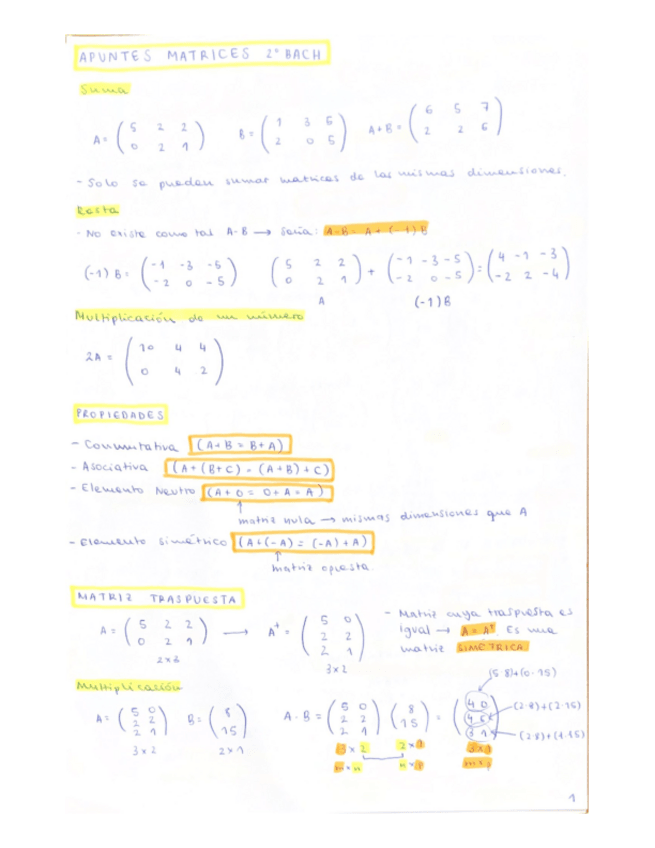 APUNTES MATRICES 2º BACH
Suma
A= ( 5 2 2 / 0 2 1 ) B= ( 1 3 5 / 2 0 5 ) A+B= ( 6 5 7 / 2 2 6 )
- Solo se pueden sumar matrices de las mismas dimensiones.
Resta
- No existe como tal A-B → sería: A-B = A+(-1)B
(-1)B= ( -1 -3 -5 / -2 0 -5 ) ( 5 2 2 / 0 2 1 ) + ( -1 -3 -5 / -2 0 -5 ) = ( 4 -1 -3 / -2 2 -4 )
A (-1)B
Multiplicación de un número
2A = ( 10 4 4 / 0 4 2 )
PROPIEDADES
- Conmutativa (A+B = B+A)
- Asociativa (A+(B+C) = (A+B)+C)
- Elemento Neutro (A+0 = 0+A = A)
matriz nula → mismas dimensiones que A
- Elemento simétrico (A+(-A) = (-A)+A)
matriz opuesta.
MATRIZ TRASPUESTA
A= ( 5 2 2 / 0 2 1 ) → Aᵗ = ( 5 0 / 2 2 / 2 1 )
2x3
3x2
- Matriz cuya traspuesta es
igual → A=Aᵗ. Es una
matriz SIMÉTRICA
Multiplicación
A= ( 5 0 / 2 2 / 2 1 ) B= ( 8 / 15 ) A·B= ( 5 0 / 2 2 / 2 1 ) ( 8 / 15 ) = ( 40 / 46 / 31 )
(5·8)+(0·15)
(2·8)+(2·15)
(2·8)+(1·15)
3x2 2x1 3x2 2x1 3x1
mxn nxp mxp
1